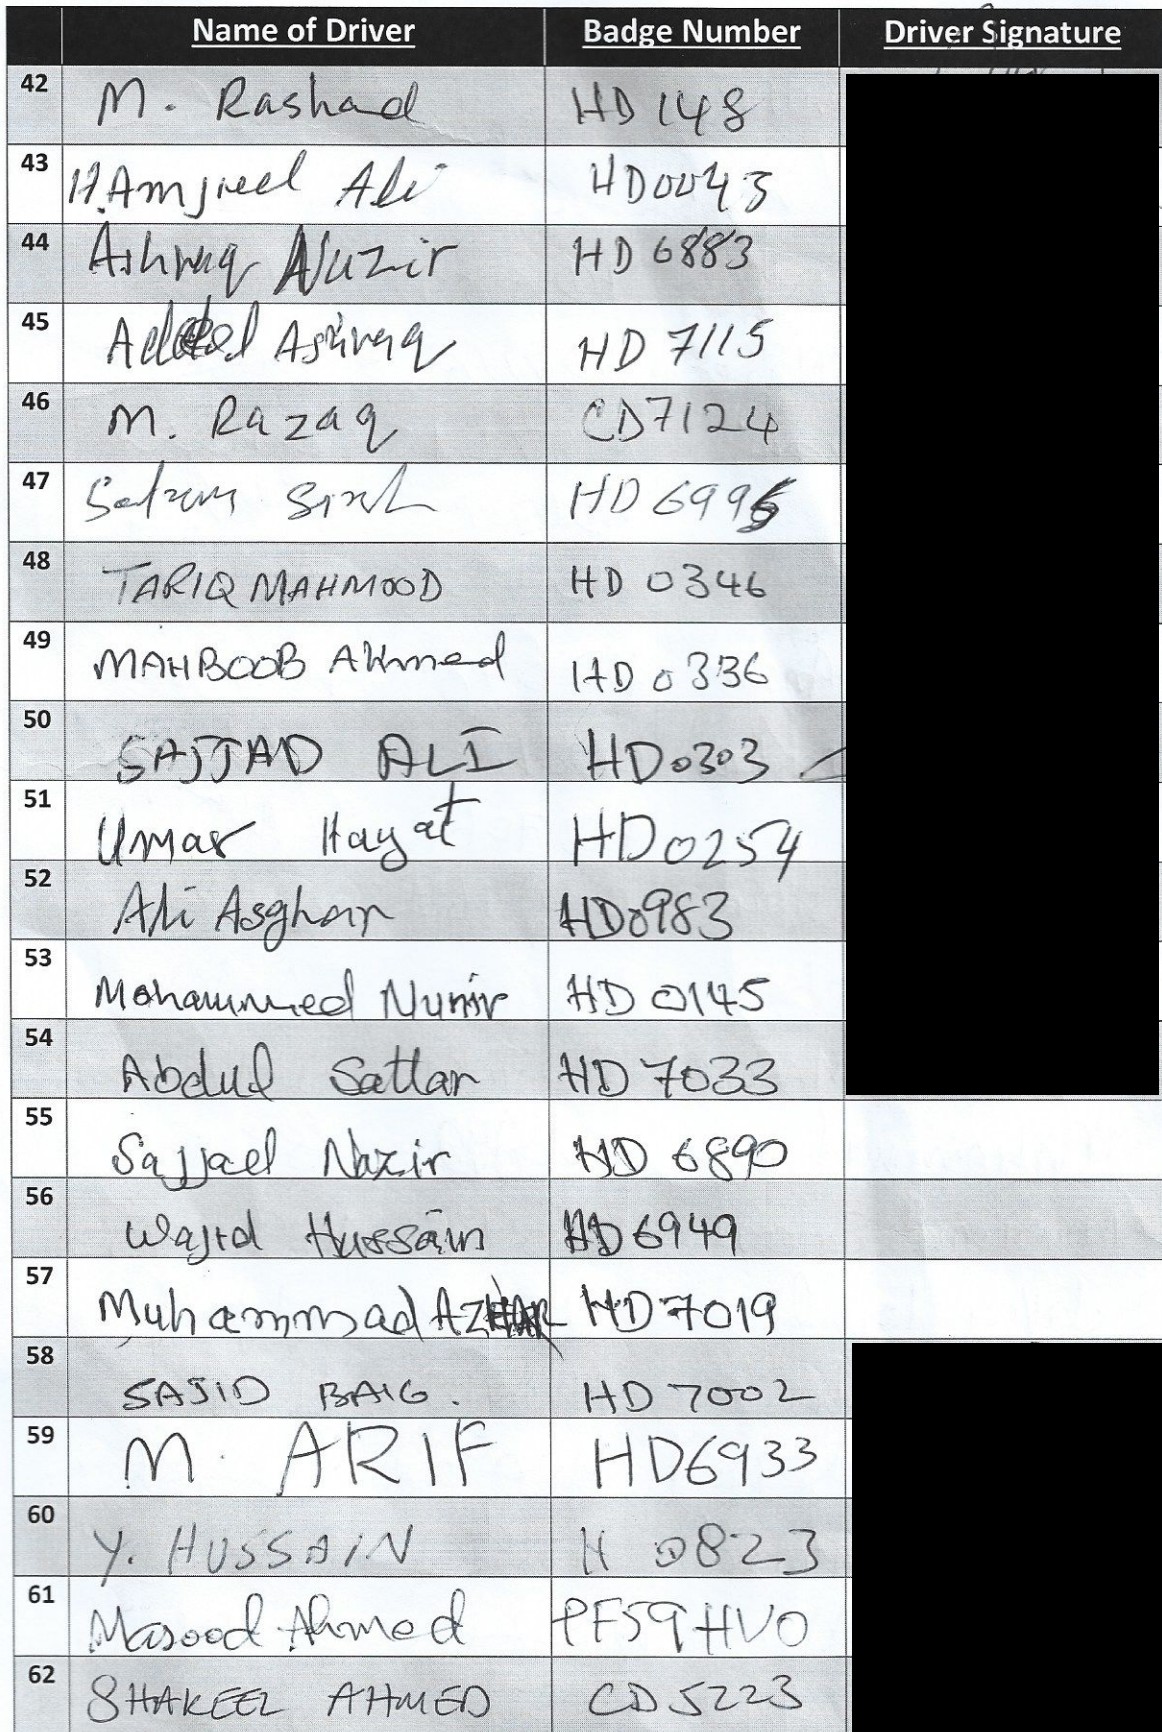 Name of Driver Badge Number Driver Signature
42 M. Rashad HD 148
43 H.Amjeel Ali HD0043
44 Ashraq Nazir HD 6883
45 Ashraq HD 7115
46 M. Razaq CD7124
47 HD 6996
48 TARIQ MAHMOOD HD 0346
49 MAHBOOB AHmed HD 0336
50 SAJJAD ALI HD0303
51 Umar Hayat HD0254
52 Ali Asghar HD0983
53 Mohammed Munir HD 0145
54 Abdul Sattar HD 7033
55 Sajjad Nazir HD 6890
56 Wajid Hussain HD6949
57 Muhammad AZHAR HD7019
58 SAJID BAIG. HD 7002
59 M. ARIF HD6933
60 Y. HUSSAIN H 0823
61 Masood Ahmed PF59HVO
62 SHAKEEL AHMED CD5223